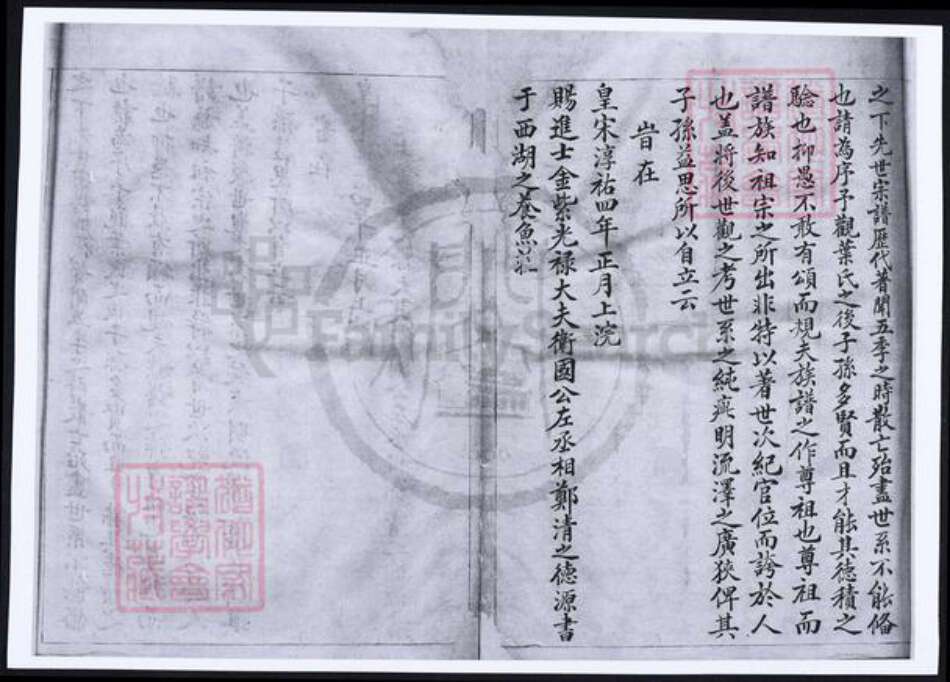 之下先世宗譜歷代著聞五季之時散亡殆盡世系不能俻
也請為序予觀葉氏之後子孫多賢而且才能其徳積之
驗也抑愚不敢有頌而規夫族譜之作尊祖也尊祖而
譜族知祖宗之所出非特以著世次紀官位而誇於人
也盖將後世觀之考世系之純疵明流澤之廣狹俾其
子孫益思所以自立云
旹在
皇宋淳祐四年正月上浣
賜進士金紫光禄大夫衛國公左丞相鄭清之德源書
于西湖之養魚莊
FamilySearch